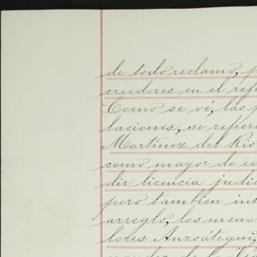 de todo reclamo,
creedores en el
Como se vé, las
laciones, se
Martinez del Rio
como mayor de
dir licencia
pero tambien
arreglo, los
lores Anzoátegui,